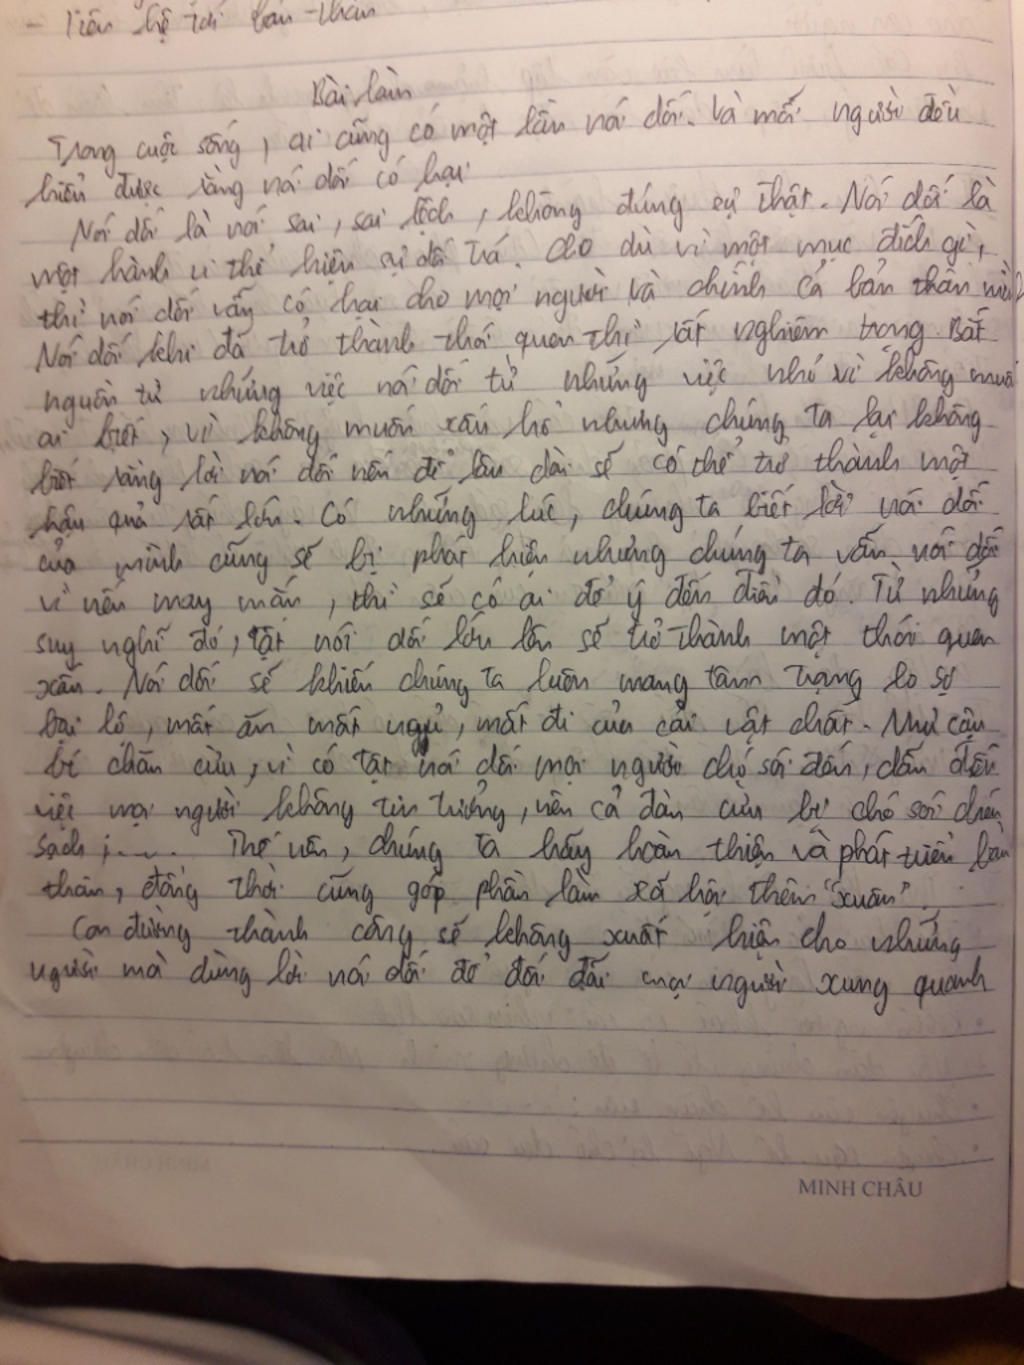 - Liên hệ tới bản thân
Bài làm
Trong cuộc sống, ai cũng có một lần nói dối. Và mỗi người đều
hiểu được rằng nói dối có hại
Nói dối là nói sai, sai lệch, không đúng sự thật. Nói dối là
một hành vi thể hiện sự dối trá. Cho dù vì một mục đích gì,
thì nói dối vẫn có hại cho mọi người và chính cả bản thân mình
Nói dối khi đã trở thành thói quen thì rất nghiêm trọng. Bắt
nguồn từ những việc nói dối từ những việc nhỏ vì không muốn
ai biết, vì không muốn xấu hổ nhưng chúng ta lại không
biết rằng lời nói dối nến để lâu dài sẽ có thể trở thành một
hậu quả rất lớn. Có những lúc, chúng ta biết lời nói dối
của mình cũng sẽ bị phát hiện nhưng chúng ta vẫn nói dối
vì nến may mắn, thì sẽ có ai để ý đến điều đó. Từ những
suy nghĩ đó, tật nói dối lớn lên sẽ trở thành một thói quen
xấu. Nói dối sẽ khiến chúng ta luôn mang tâm trạng lo sợ
bại lộ, mất ăn mất ngủ, mất đi của cải vật chất. Như cậu
bé chăn cừu, vì có tật nói dối mọi người chó sói đến, dẫn đến
việc mọi người không tin tưởng, nên cả đàn cừu bị chó sói chén
sạch;.... Thế nên, chúng ta hãy hoàn thiện và phát triển bản
thân, đồng thời cũng góp phần làm xã hội thêm "xuân".
Con đường thành công sẽ không xuất hiện cho những
người mà dùng lời nói dối để đối đãi mọi người xung quanh
MINH CHÂU